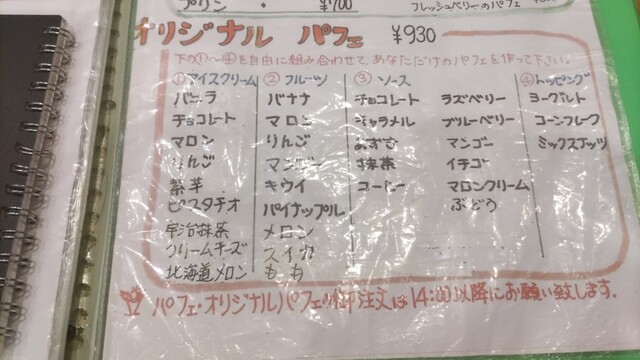 プリン ・ ¥700
フレッシュベリーのパフェ
オリジナル パフェ ¥930
下の①〜④を自由に組み合わせて、あなただけのパフェを作って下さい。
①アイスクリーム ②フルーツ ③ソース ④トッピング
バニラ バナナ チョコレート ラズベリー ヨーグルト
チョコレート マロン キャラメル ブルーベリー コーンフレーク
マロン りんご あずき マンゴー ミックスナッツ
りんご マンゴー 抹茶 イチゴ
紫芋 キウイ コーヒー マロンクリーム
ピスタチオ パイナップル ぶどう
宇治抹茶 メロン
クリームチーズ スイカ
北海道メロン もも
パフェ・オリジナルパフェの御注文は14:00以降にお願い致します。